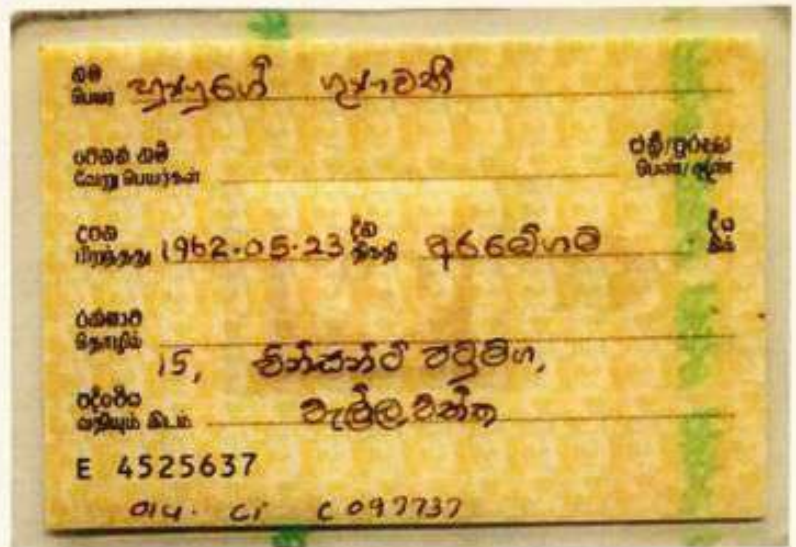 නම
பெயர் හපුගේ ගුණවතී
වෙනත් නම්
வேறு பெயர்கள்
ස්ත්‍රී/පුරුෂ
பெண்/ஆண்
උපන
பிறந்தது 1962-05-23 දින
திகதி අරම්ගම දීය
இல்
රක්ෂාව
தொழில்
15, වින්සන්ට් පටුමග,
පදිංචිය
வதியும் இடம் වැල්ලවත்த
E 4525637
014. Cr C 097737